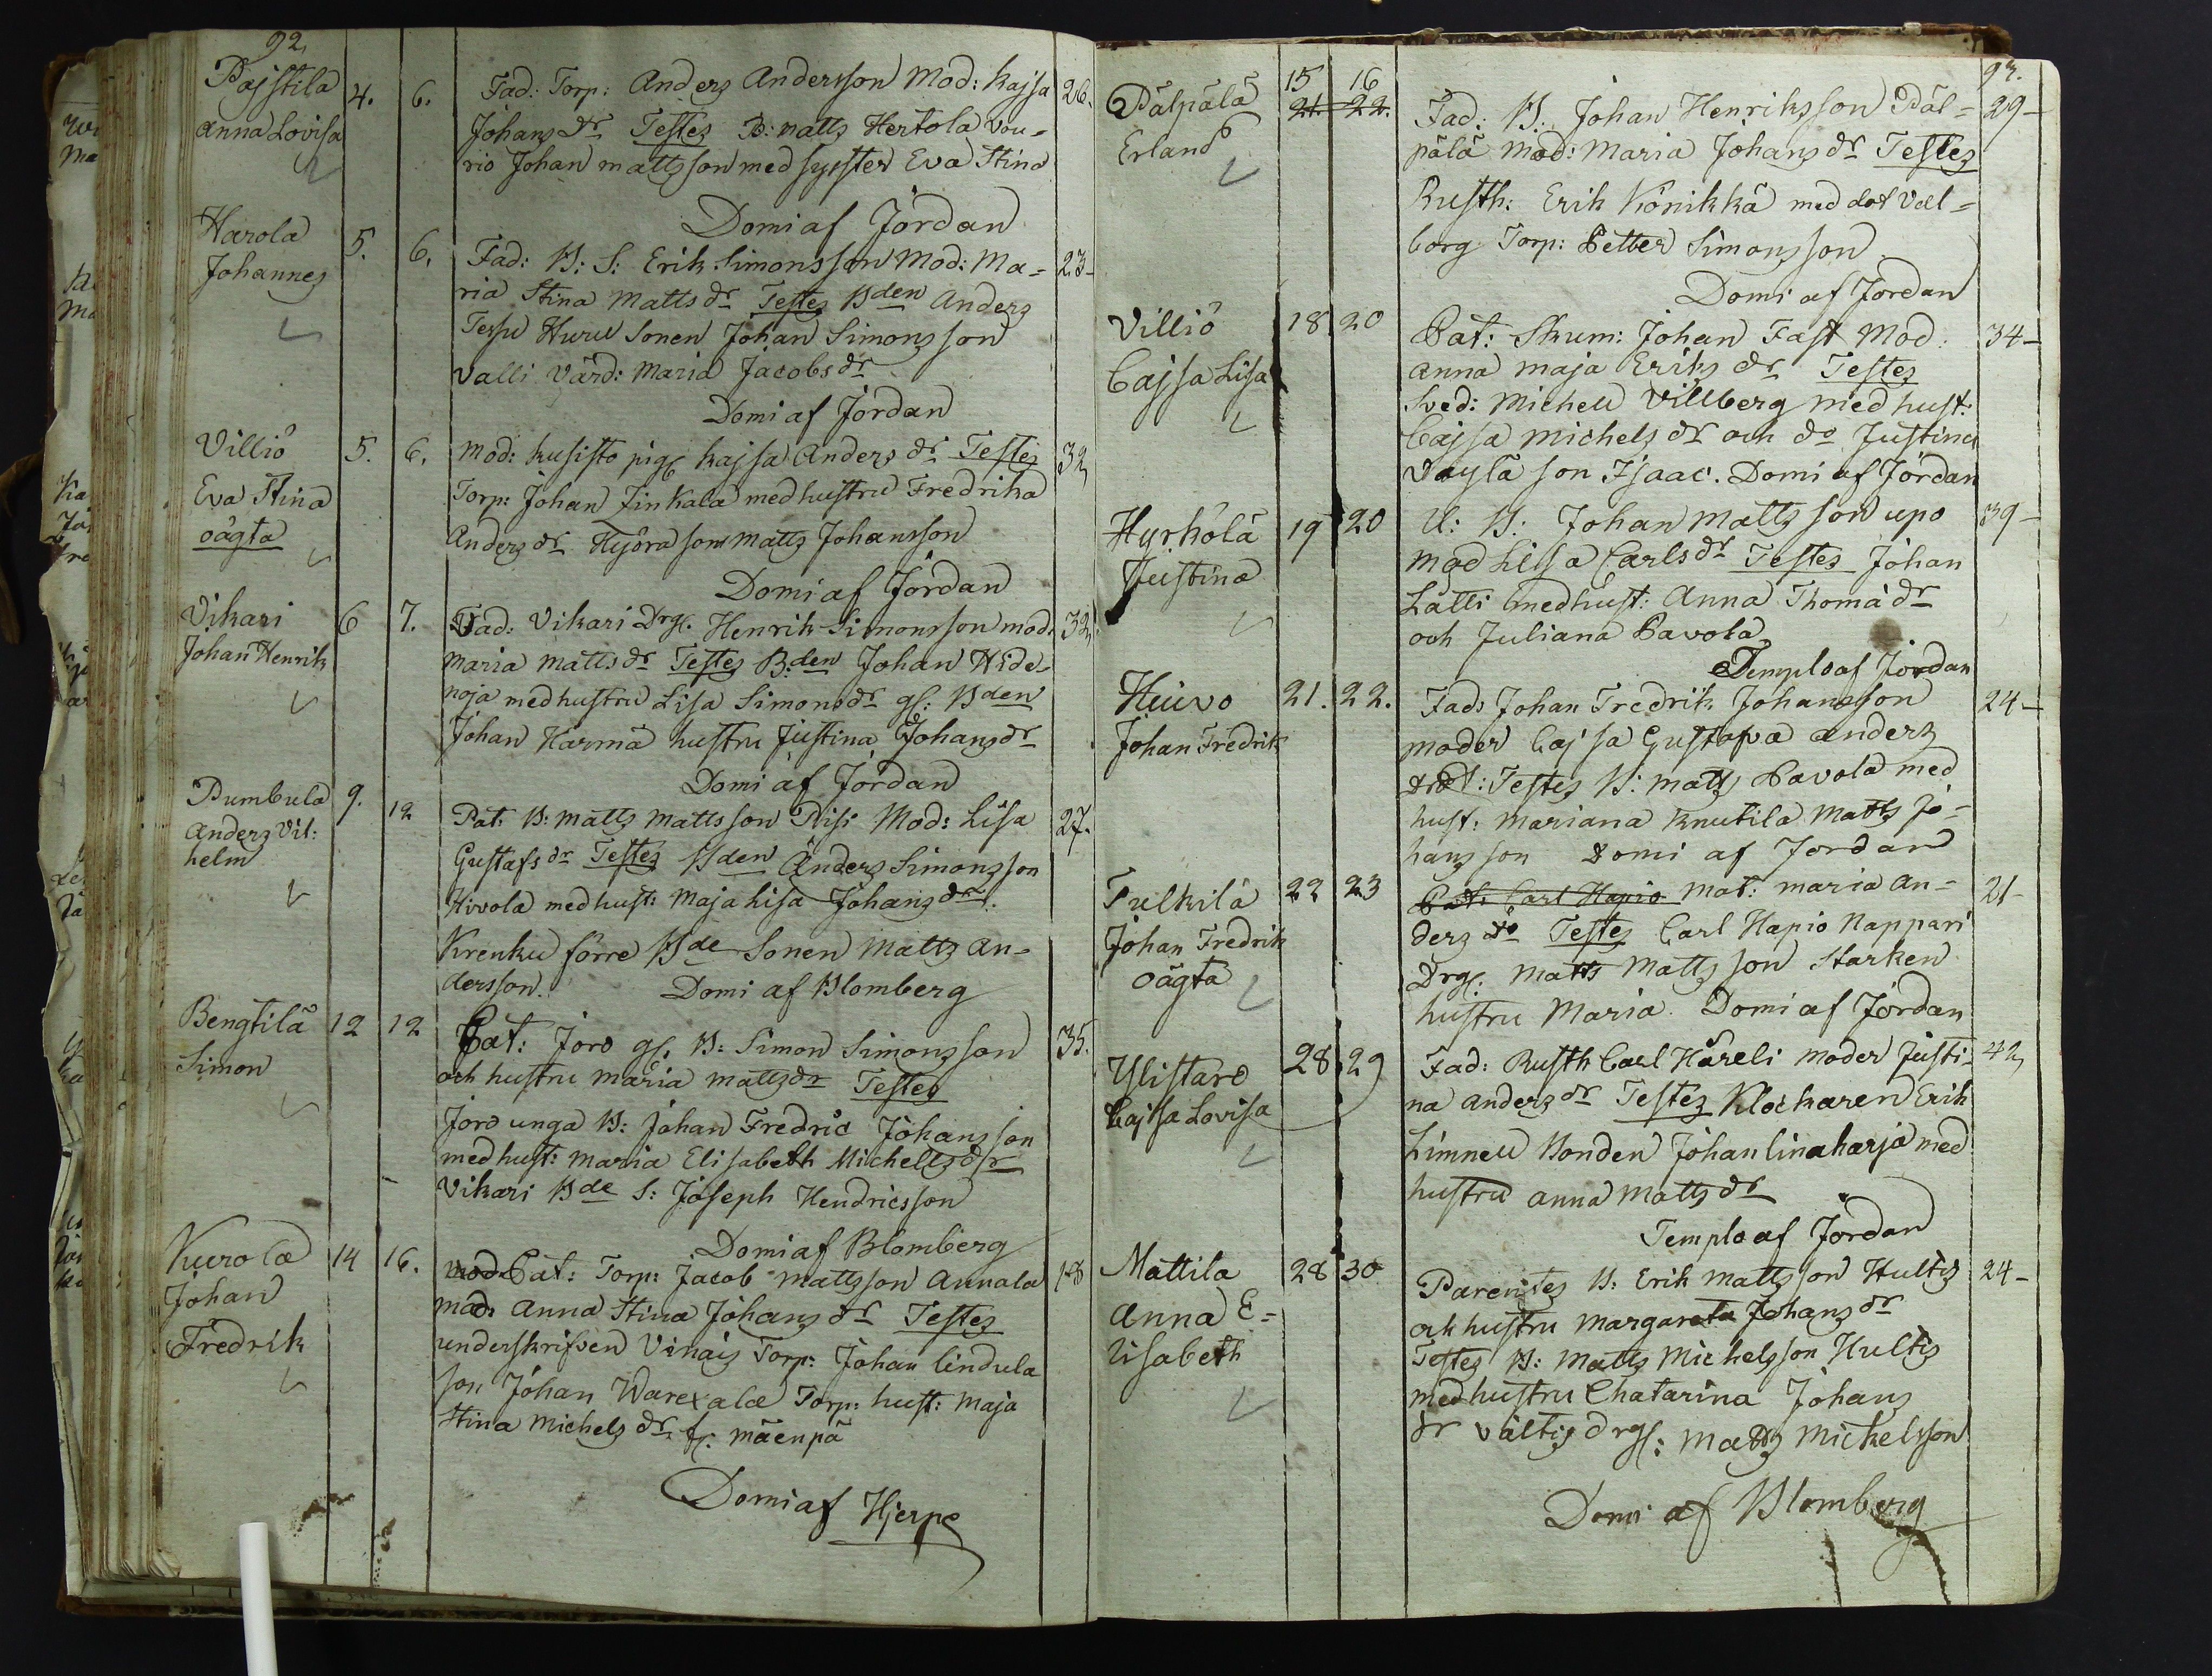 92.
Pajstila 4. 6. Fad: Torp: Anders Andersson Mod: Kajsa 26.
Anna Lovisa Johans dr Testes B: Matts Hertola Vou-
rio Johan Mattsson med syster Eva Stina
Domi af Jordan
Harola 5. 6. Fad: B: S: Erik Simonsson Mod: Ma- 23-
Johannes ria Stina Matts dr Testes Bden Anders
Huru Sonen Johan Simonsson
Valli Värd: Maria Jacobs dr
Domi af Jordan
Villiö 5. 6. Mod: Kusisto pig: Kajsa Anders dr Testes 32
Eva Stina Torp: Johan Finkala med hustru Fredrika
oägta Anders dr Hyöra son Matts Johansson
Domi af Jordan
Vikari 6 7. Fad: Vikari Drg: Henrik Simonsson mod. 32.
Johan Henrik Maria Matts dr Testes B:den Johan Hide-
noja med hustru Lisa Simons dr gl: Bden
Johan Harma hustru Justina Johans dr
Domi af Jordan
Pumbula 9. 12 Pat: B: Matts Mattsson Nisi Mod: Lisa 27.
Anders Vil: Gustafs dr Testes Bden Anders Simonsson
helm Hivola med hust: Maja Lisa Johans dr.
Krenku förre Bde Sonen Matts An-
dersson. Domi af Blomberg
Bengtilä 12 12 Pat: Joro gl: B: Simon Simonsson 35.
Simon och hustru Maria Matts dr Testes
Joro unga B: Johan Fredric Johansson
med hust: Maria Elisabeth Michels dr
Vikari Bde S: Joseph Hendricsson
Domi af Blomberg
Kurola 14 16. Pat: Torp: Jacob Mattsson Annala 18
Johan mod: Anna Stina Johans dr Testes
Fredrik underskrifven Torp: Johan Lindula
son Johan Torp: hust: Maja
Stina Michels dr fr. Mäenpä
Domi af Hjerpe
93.
Pälpälä 15 16 Fad: B: Johan Henriksson Päl- 29-
21. 22.
Erland pälä Mod: Maria Johans dr Testes
Rusth: Erik Könikkä med dot Val-
borg Torp: Petter Simonsson
Domi af Jordan
Villiö 18 20 Pat: Skum: Johan Fast Mod: 34-
Cajsa Lisa Anna Maja Eriks dr Testes
Sved: Michell Villberg med hust:
Cajsa Michels dr och do Justina
Väylä son Isaac. Domi af Jordan
Hyrkölä 19 20 U: B: Johan Mattsson upo 39-
Justina mod Lisa Carls dr Testes Johan
Latti med hust: Anna Thomä dr
och Juliana Pavola
Templo af Jordan
Huivo 21. 22. Fad: Johan Fredrik Johansson 24-
Johan Fredrik moder Cajsa Gustafva Anders
Testes B: Matts Pavola med
hust: Mariana Knutila Matts Jo-
hansson Domi af Jordan
Tulkila 22 23 Pat: Carl Hapio Mat: Maria An- 21-
Johan Fredrik ders dr Testes Carl Hapio Nappari
oägta Drg: Matts Mattsson Starken
hustru Maria. Domi af Jordan
Ylistaro 28 29 Fad: Rusth Carl Häreli moder Justi- 42
Cajsa Lovisa na Anders dr Testes Klockaren Erik
Limnell Bonden Johan Linaharja med
hustru Anna Matts dr
Templo af Jordan
Mattila 28 30 Parentes B: Erik Mattsson Hultis 24-
Anna E- och hustru Margareta Johans dr
lisabeth Testes B: Matts Michelsson Hultis
med hustru Chatarina Johans
dr Vältis drg: Matts Mickelsson
Domi af Blomberg